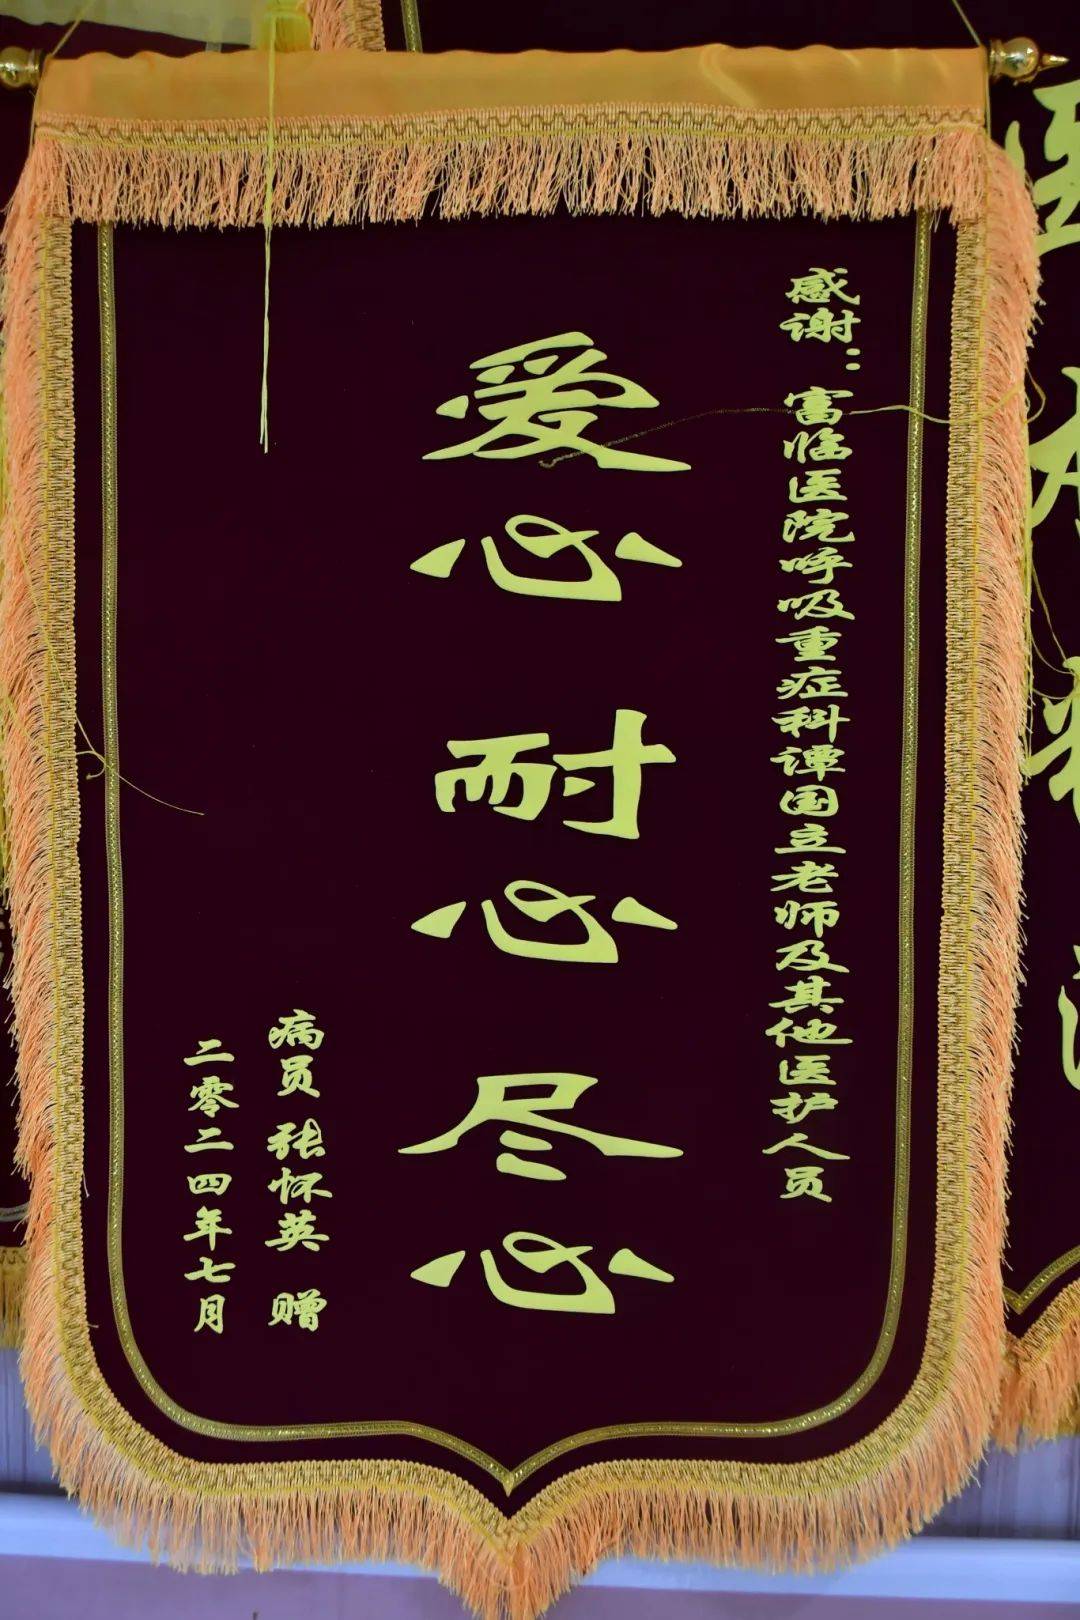 感谢：富临医院呼吸重症科谭国立老师及其他医护人员
爱心 耐心 尽心
病员 张怀英 赠
二零二四年七月